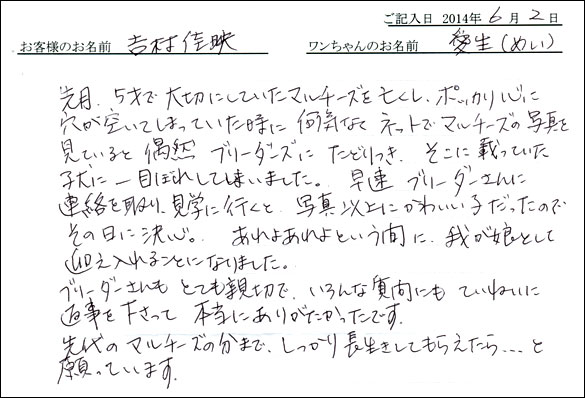 ご記入日 2014年6月2日
お客様のお名前 吉村佳映 ワンちゃんのお名前 愛生(めい)
先月、5才で大切にしていたマルチーズを亡くし、ポッカリ心に
穴が空いてしまっていた時に 何気なくネットでマルチーズの写真を
見ていると 偶然 ブリーダーズに たどりつき、そこに載っていた
子犬に一目ぼれしてしまいました。 早速 ブリーダーさんに
連絡を取り、見学に行くと、写真以上にかわいい子だったので
その日に決心。 あれよあれよという間に、我が娘として
迎え入れることになりました。
ブリーダーさんも とても親切で、いろんな質問にも ていねいに
返事を下さって 本当にありがたかったです。
先代のマルチーズの分まで、しっかり長生きしてもらえたら...と
願っています。